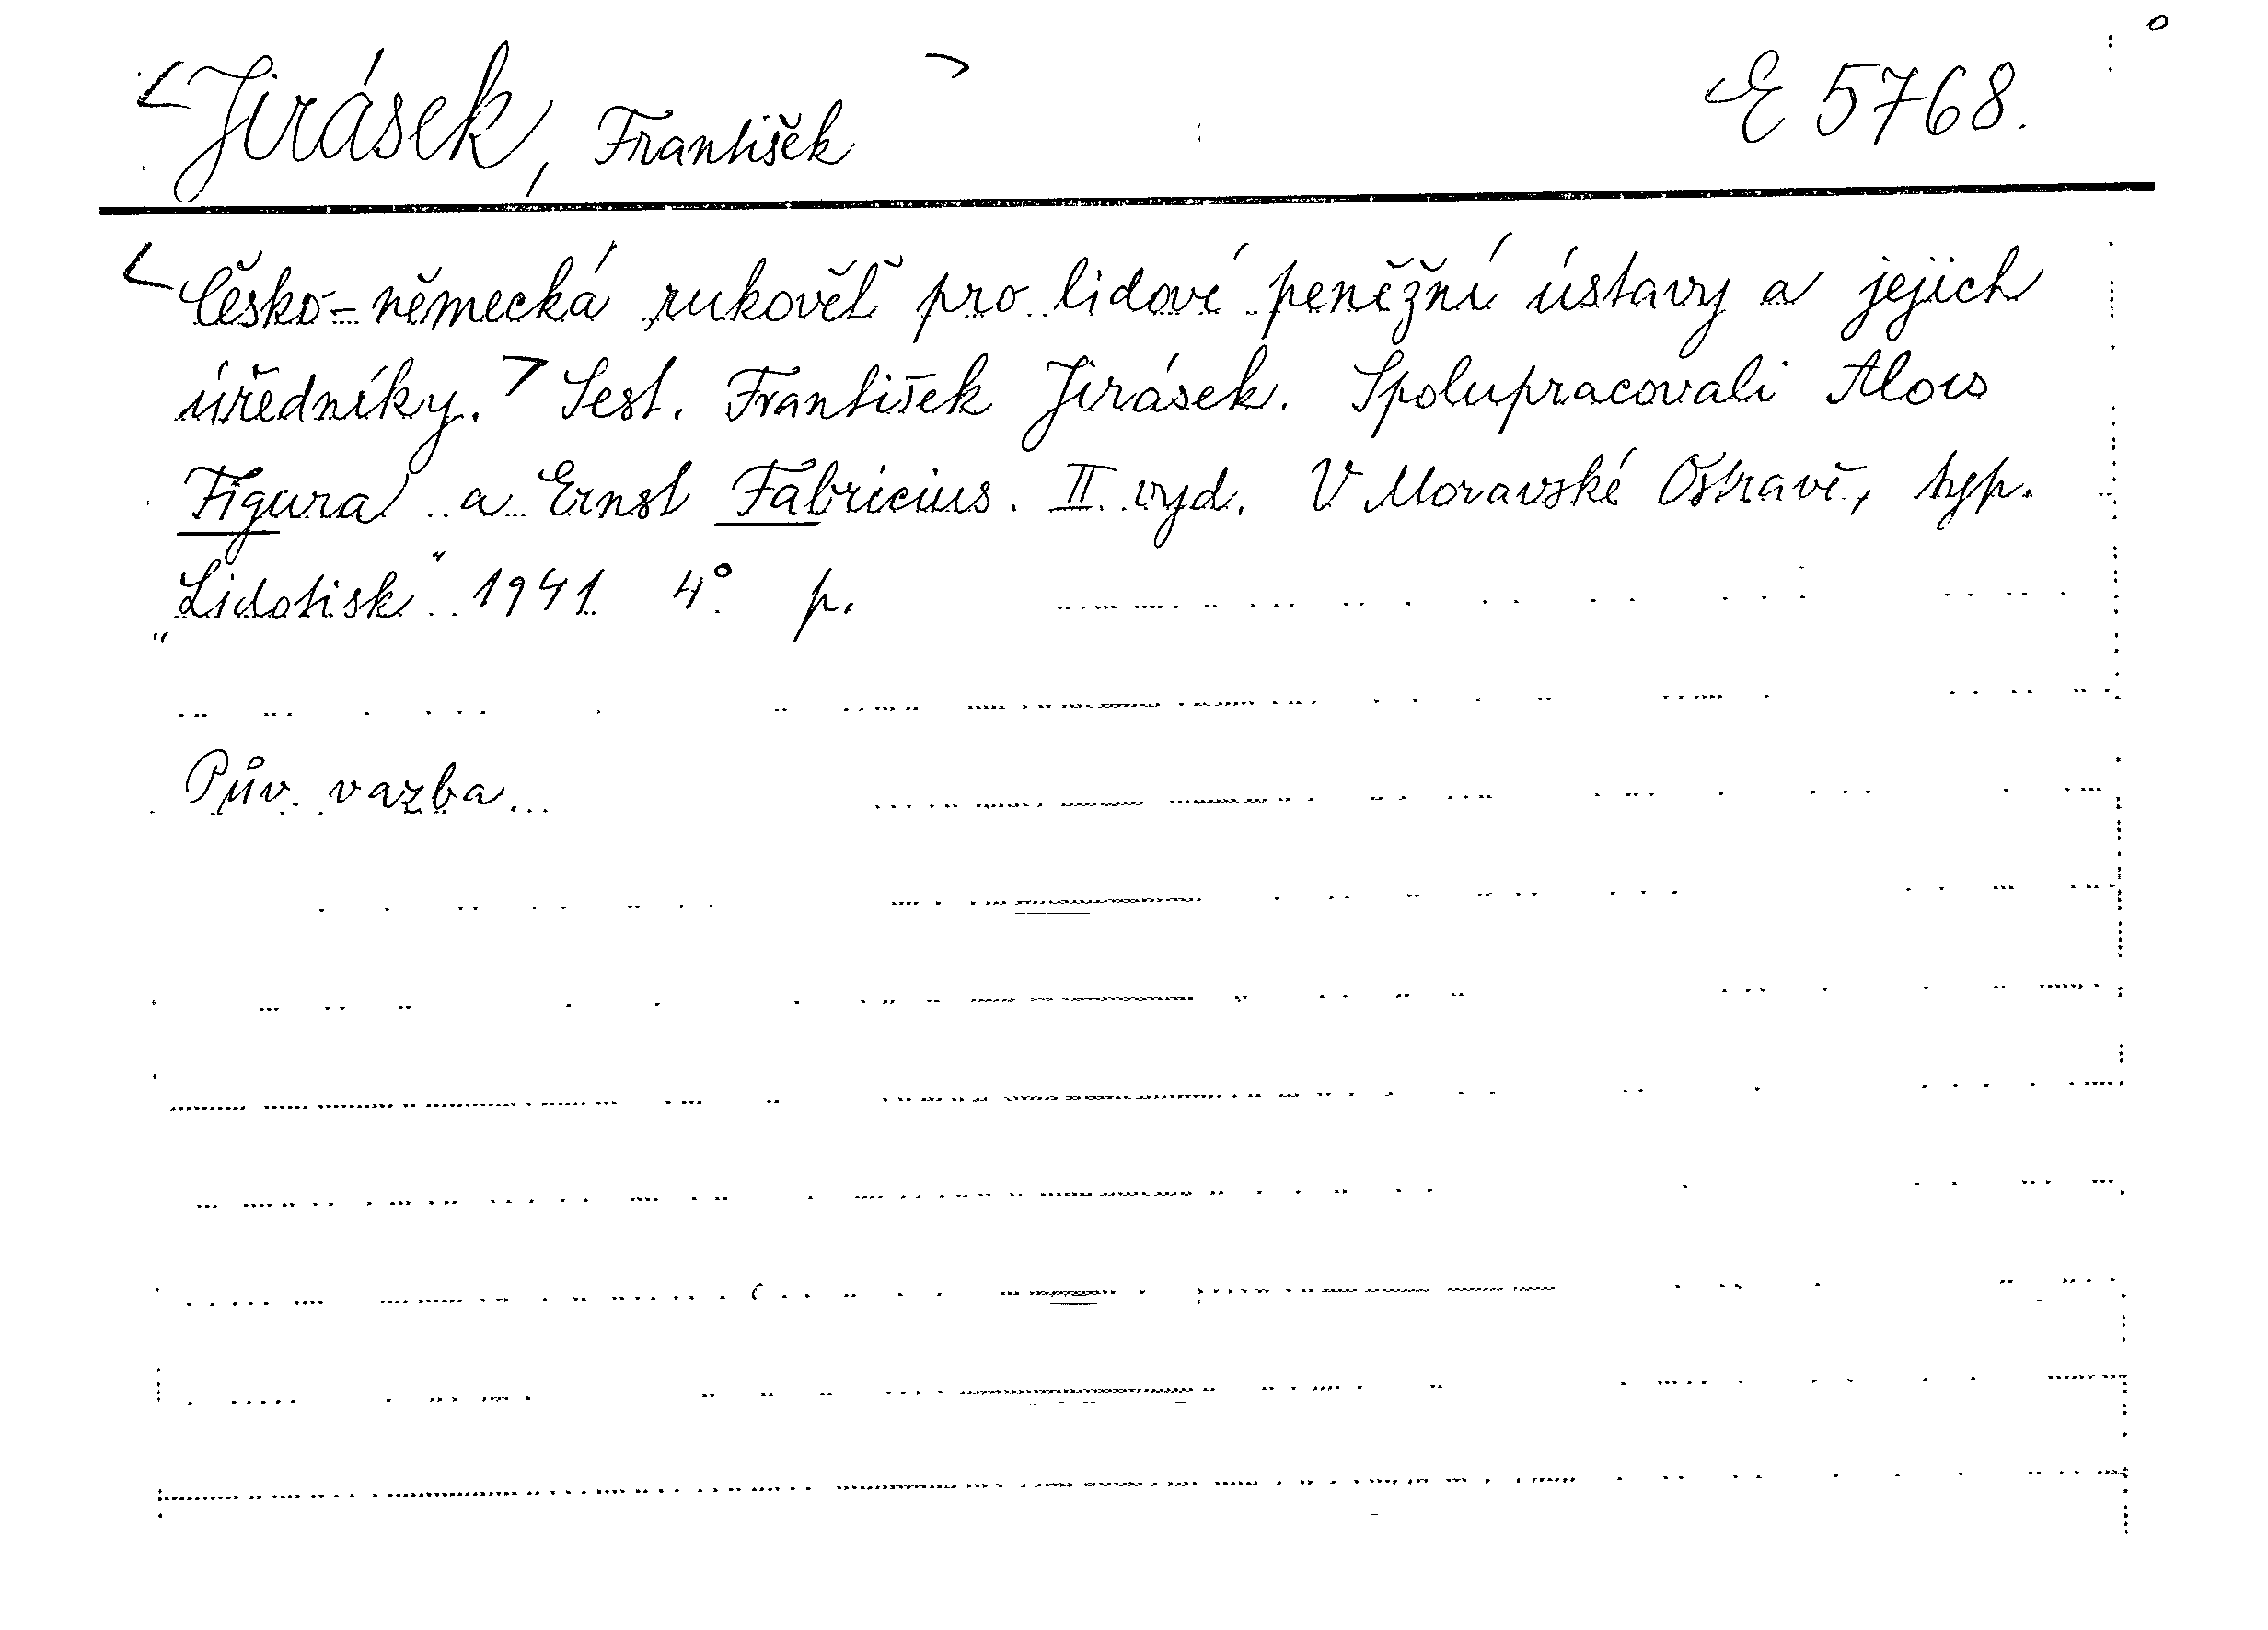 <Jirásek, František> E 5768.
<Česko-německá rukověť pro lidové peněžní ústavy a jejich
úředníky.> Sest. František Jirásek. Spolupracovali Alois
Figura a Ernst Fabricius. II. vyd. V Moravské Ostravě, typ.
„Lidotisk“ 1941 4° p.
Pův. vazba.